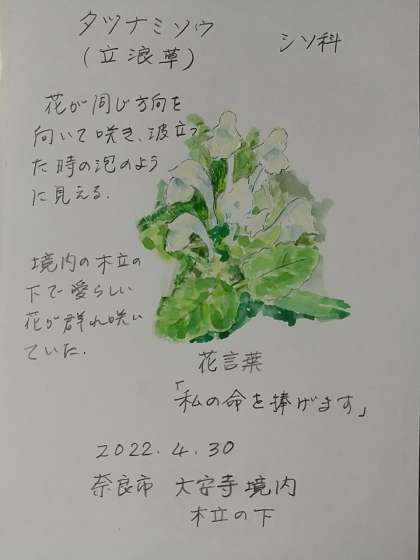 タツナミソウ
(立浪草)
シソ科
花が同じ方向を
向いて咲き、波立っ
た時の泡のよう
に見える.
境内の木立の
下で愛らしい
花が群れ咲い
ていた.
花言葉
「私の命を捧げます」
2022.4.30
奈良市 大安寺境内
木立の下